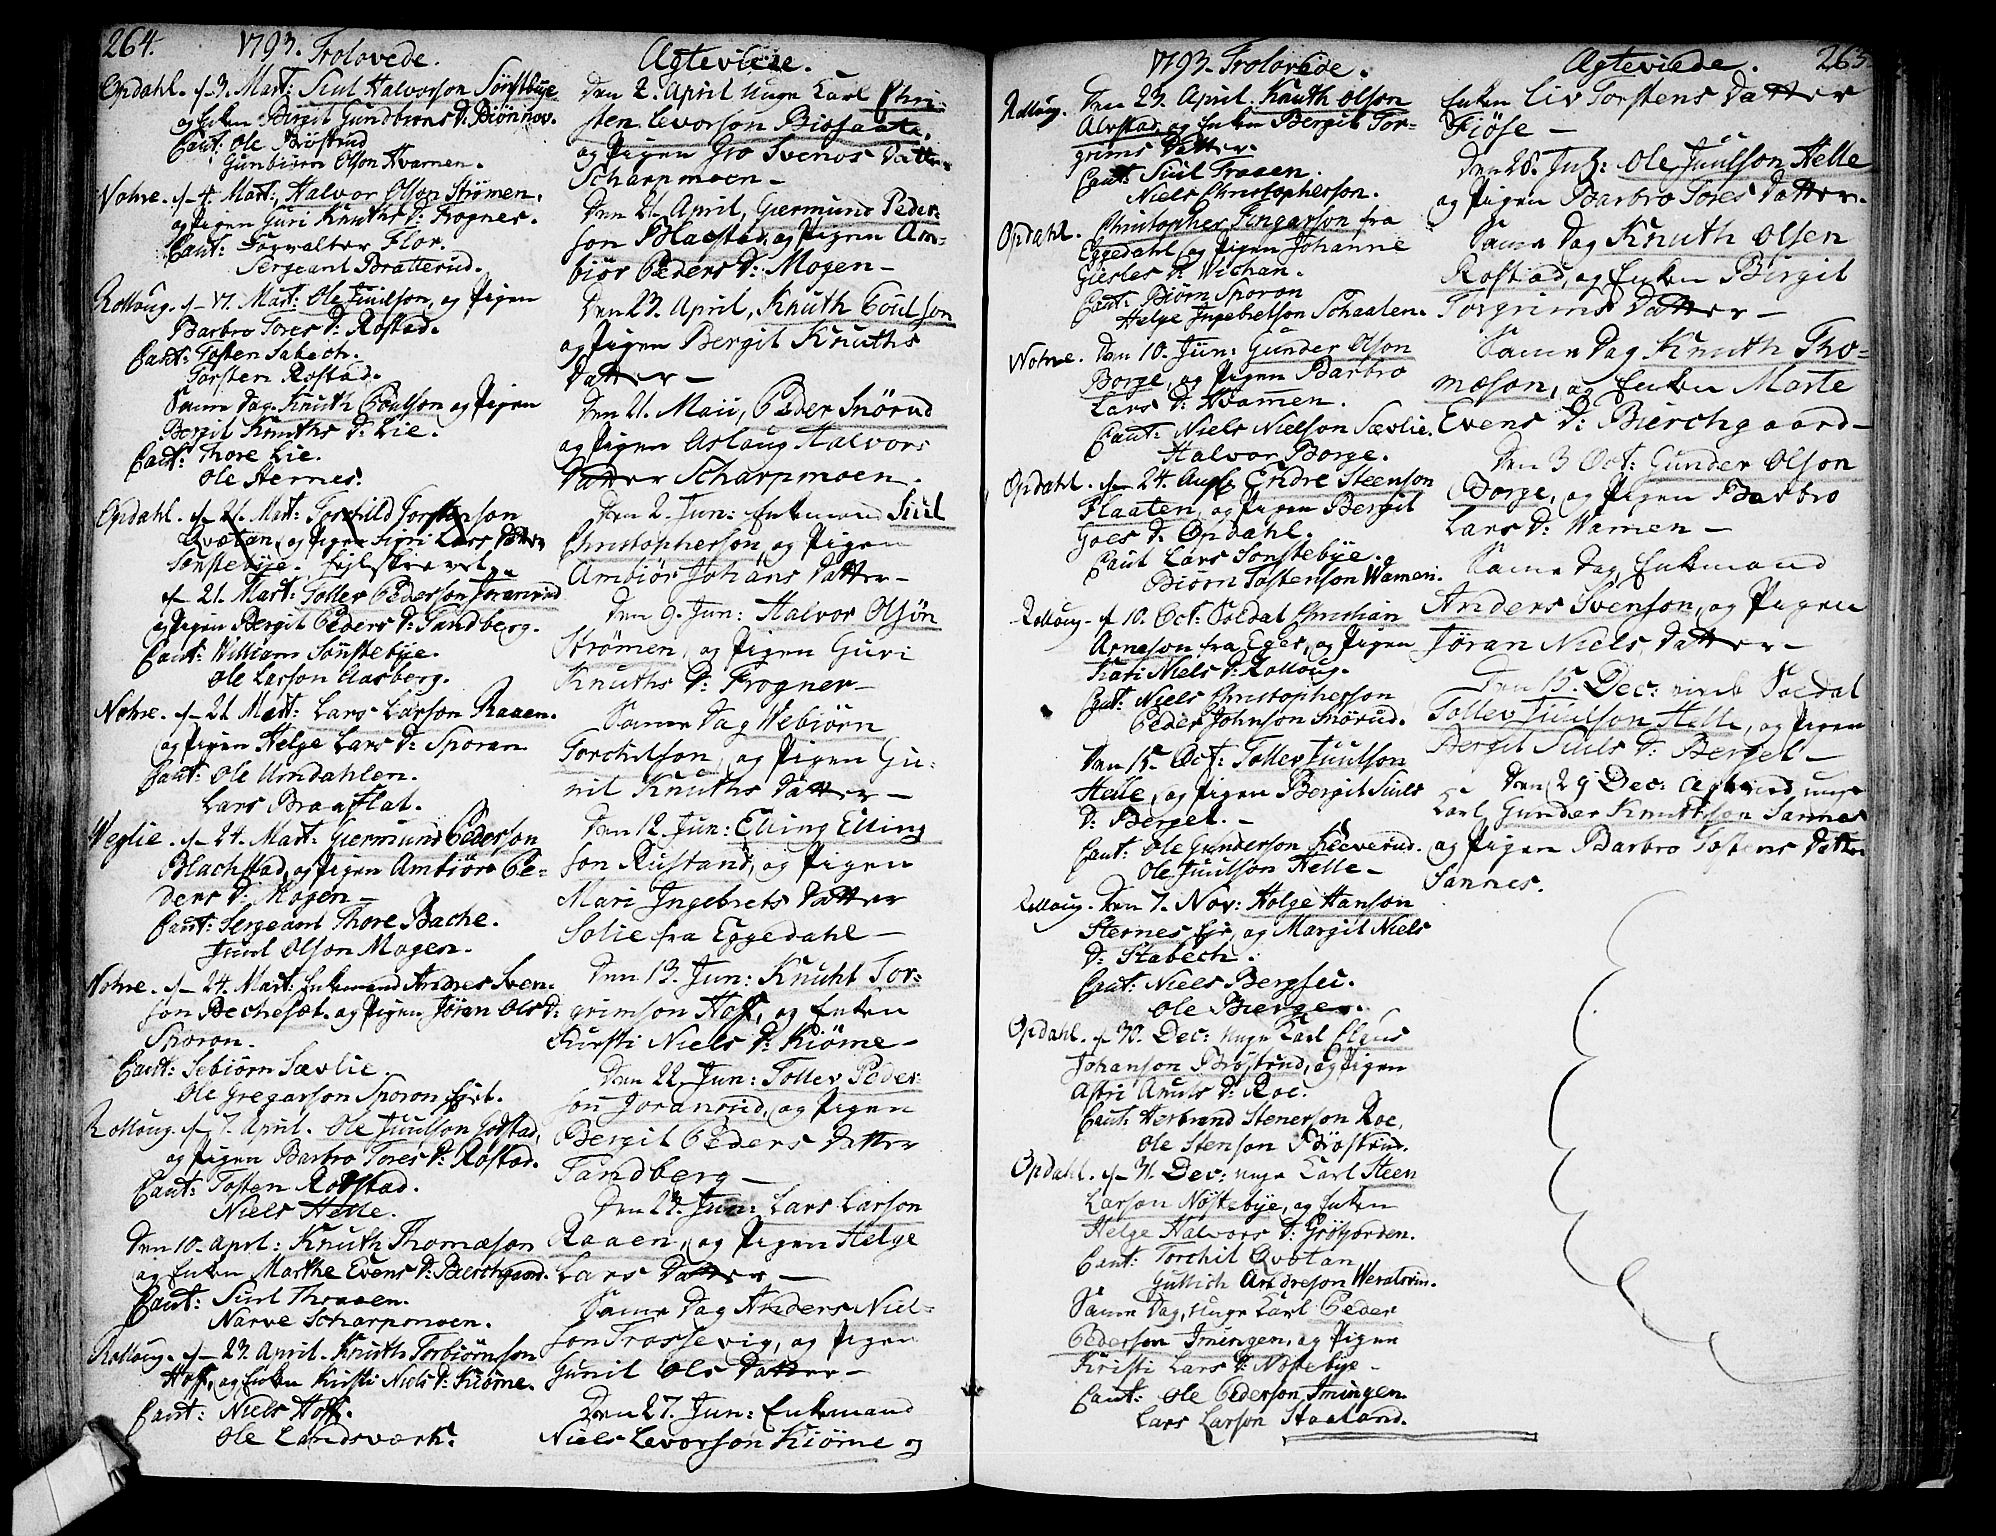 264.
1793. Trolovede.
Opdahl. d. 3. Mart: Siul Halvorson Sønstebye
og Enken Birgit Gundbiørns D: Biønnov.
Caut: Ole Brøstrud
Gunbiørn Olson Hvamen.
Nohre. d. 4. Mart: Halvor Olson Strømen,
og Pigen Guri Knuths D: Frogner.
Caut: Forvalter Flor.
Sergeant Bratterud.
Rolloug. d. 17. Mart: Ole Juulson, og Pigen
Barbro Tores D: Rostad.
Caut: Tosten Sabech.
Torsten Rostad.
Samme Dag. Knuth Poulson og Pigen
Bergit Knuths D: Lie.
Caut: Thore Lie.
Ole Hernes.
Opdahl. d. 21. Mart: Torchild Torstenson
Qvætan, og Pigen Sigri Lars Datter
Sønstebye. fejlskrevet.
d. 21. Mart: Tollev Pederson Joranrud
og Pigen Bergit Peders D: Tandberg.
Caut: William Sønstebye.
Ole Larson Aasberg.
Nohre. d. 21. Mart: Lars Larson Raaen.
og Pigen Helge Lars D: Sporan
Caut: Ole Umdahlen.
Lars Braaflat.
Weglie. d. 24. Mart: Giermund Pederson
Blachstad, og Pigen Ambiør Pe-
ders D: Mogen
Caut: Sergeant Thore Bache.
Juul Olson Mogen.
Nohre. d. 24. Mart: Enkemand Andres Sven-
son Bechesæt. og Pigen Jøran Ols D:
Sporon.
Caut: Sebiørn Sævlie.
Ole Gregarson Sporon
Rolloug. d. 7. April. Ole Juulson Godstad,
og Pigen Barbro Tores D: Rostad.
Caut: Tosten Rostad.
Niels Helle.
Den 10. Aprl: Knuth Thomæson
og Enken Marthe Evens D: Bierchgaard.
Caut: Siul Thraaen.
Narve Scharpmoen.
Rolloug. d. 23. April. Knuth Torbiørnson
Hoff, og Enken Kirsti Niels D: Kiøme.
Caut: Niels Hoff.
Ole Landsværk.
Ægteviede.
Den 2. April Unge Karl Chri-
sten Levorson Biosaate,
og Pigen Gro Svenos Datter
Scharpmoen —
Den 21. April, Giermund Peder-
son Blastad, og Pigen Am-
biør Peders D: Mogen —
Den 23. April, Knuth Poulson
og Pigen Bergit Knuths
Datter —
Den 21. Maii, Peder Snørud
og Pigen Aslaug Halvors
Datter Scharpmoen.
Den 2. Jun: Enkemand Siul
Christopherson, og Pigen
Ambiør Johans Datter —
Den 9. Jun: Halvor Olsøn
Strømen, og Pigen Guri
Knuths D: Frogner —
Samme Dag Webiørn
Torchilson, og Pigen Gu-
nil Knuths Datter —
Den 12. Jun: Elling Elling
son Rustand, og Pigen
Mari Ingebrets Datter
Solie fra Eggedahl —
Den 13. Jun: Knuht Tor-
grimson Hoff, og Enken
Kirsti Niels D: Kiøme —
Den 22. Jun: Tollev Peder-
son Joranrud, og Pigen
Bergit Peders Datter
Tandberg —
Den 23. Jun: Lars Larson
Raaen, og Pigen Helge
Lars Datter —
Samme Dag Anders Niel-
son Trossevig, og Pigen
Gunil Ols Datter —
Den 27. Jun: Enkemand
Niels Levorson Kiøme og
1793. Trolovede.
Rolloug. Den 23. April. Knuth Olson
Alvstad, og Enken Bergit Tor-
grims Datter.
Caut: Siul Traaen.
Niels Christopherson.
Opdahl. Christopher Tingarson fra
Eggedahl, og Pigen Johanne
Giesles D: Wichan.
Caut: Biørn Sporon
Helge Ingebretson Schaalen.
Nohre. Den 10. Jun: Gunder Olson
Borge, og Pigen Barbro
Lars D: Hvamen.
Caut: Niels Nielson Sævlie.
Halvor Borge.
Opdahl. d. 24. Aug: Endre Steenson
Flaaten, og Pigen Bergit
Goes D: Opdahl.
Caut Lars Sønstebye.
Biørn Tostenson Wamen.
Rolloug. d. 10. Oct: Soldat Christian
Arneson fra Eger, og Pigen
Kari Niels D: Rolloug.
Caut: Niels Christopherson
Peder Johnson Snørud.
Den 15. Oct: Tollev Juulson
Helle, og Pigen Bergit Siuls
D: Bergel. —
Caut: Ole Gunderson Keeverud.
Ole Juulson Helle —
Rolloug. Den 7. Nov: Helge Hanson
Sternes og Margit Niels
D: Stabech.
Caut: Niels Bergseu.
Ole Bierger.
Opdahl. d. 30. Dec: Unge Karl Claus
Johanson Brøstrud, og Pigen
Astri Amuls D: Roe.
Caut: Herbrand Stenerson Roe.
Ole Stenson Brøstrud.
Opdahl. d. 31. Dec: Unge Karl Steen
Larson Nøstebye, og Enken
Helge Halvors D: Grøfjorden.
Caut: Torchil Qvætan
Guttich Arfdreson
Samme Dag, Unge Karl Peder
Pederson Imingen, og Pigen
Kiristi Lars D: Nøstebye —
Caut: Ole Pederson Imingen.
Lars Larson Staaland.
Ægteviede.
265.
Enken Liv Torstens Datter
Fiøse —
Den 28. Jul: Ole Juulson Helle
og Pigen Barbro Tores Datter.
Samme Dag Knuth Olsen
Rostad, og Enken Birgit
Torgrims Datter —
Samme Dag Knuth Tho-
mæson, og Enken Marte
Evens D: Bierchgaard —
Den 3 Oct: Gunder Olson
Borge, og Pigen Barbro
Lars D: Wamen —
Samme Dag Enkemand
Anders Svenson, og Pigen
Jøran Niels Datter —
Den 15. Dec: viede Soldat
Tollev Juulson Helle, og Pigen
Bergit Siuls D: Bergel —
Den 29 Dec: Ægteviede unge
Karl Gunder Knuthson Sannes
og Pigen Barbro Tostens Datter
Sannes.